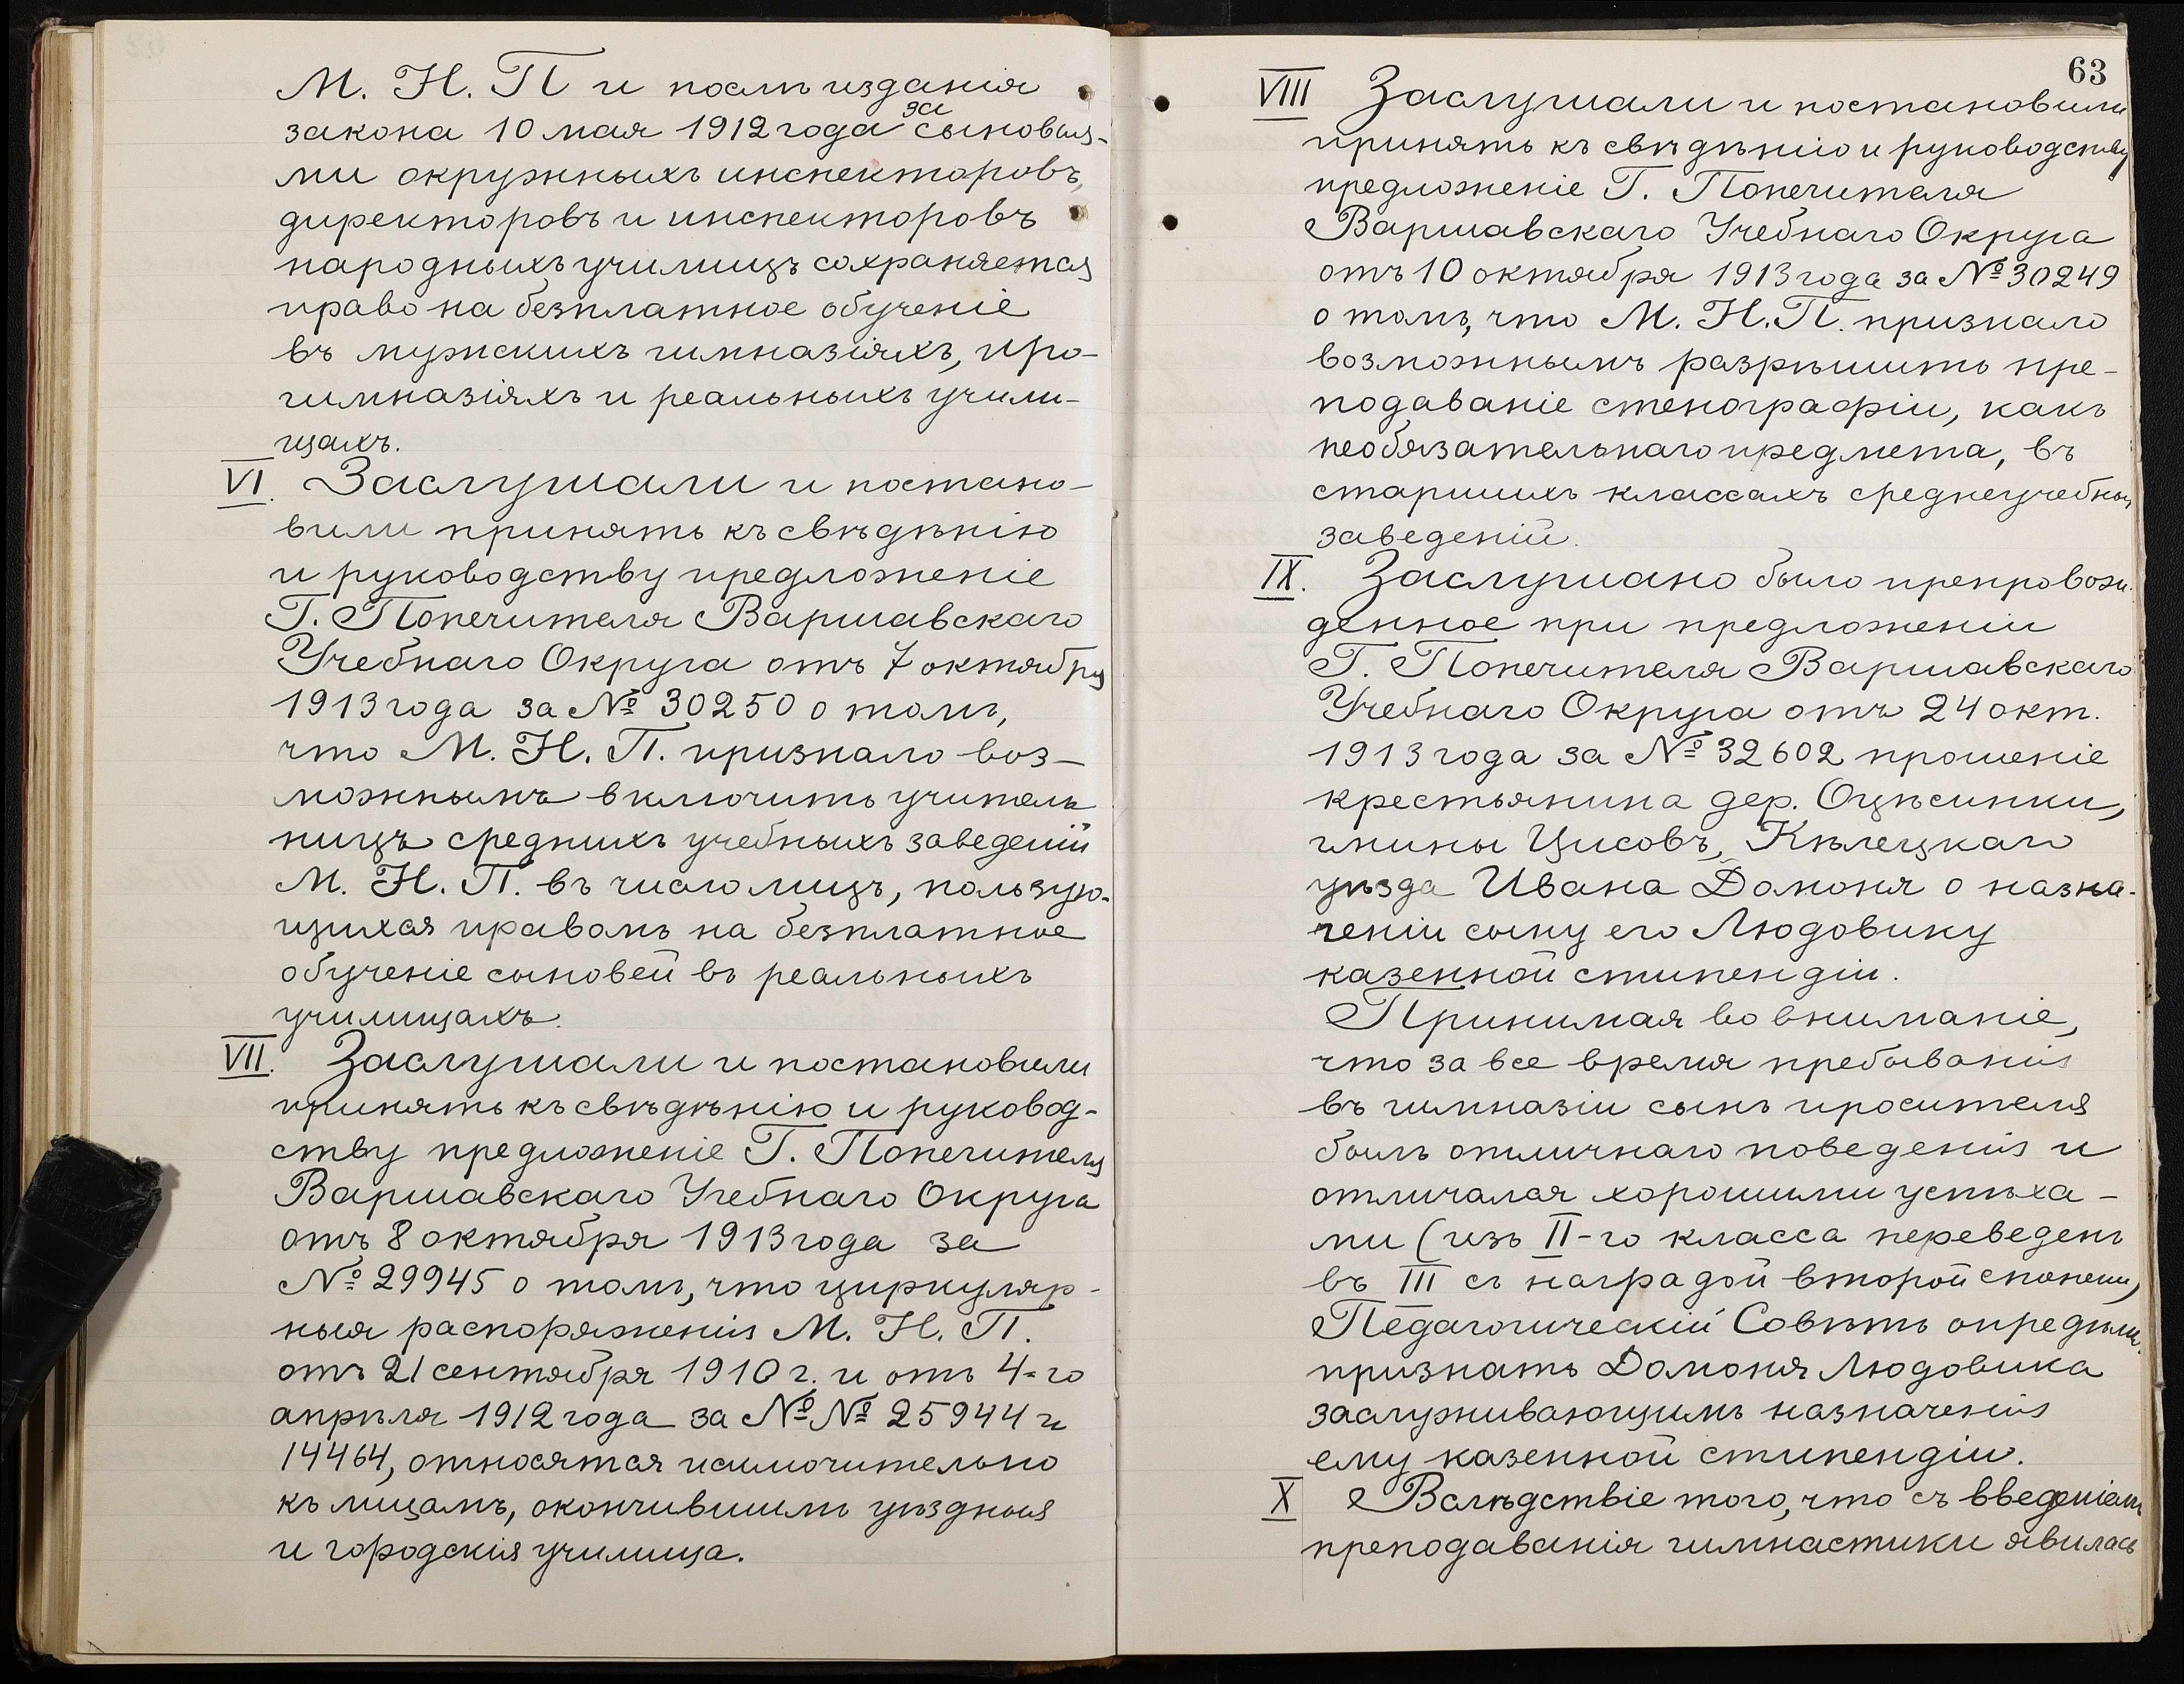 М. Н. П и послѣ изданія
закона 10 мая 1912 года за сыновья-
ми окружныхъ инспекторовъ,
директоровъ и инспекторовъ
народныхъ училищъ сохраняется
право на безплатное обученіе
въ мужскихъ гимназіяхъ, про-
гимназіяхъ и реальныхъ учили-
щахъ.
VI. Заслушали и постано-
вили принять къ свѣдѣнію
и руководству предложеніе
Г. Попечителя Варшавскаго
Учебнаго Округа отъ 7 октября
1913 года за № 30250 о томъ,
что М. Н. П. признало воз-
можнымъ включить учитель
ницъ среднихъ учебныхъ заведеній
М. Н. П. въ число лицъ, пользую-
щихся правомъ на безплатное
обученіе сыновей въ реальныхъ
училищахъ.
VII. Заслушали и постановили
принять къ свѣдѣнію и руковод-
ству предложеніе Г. Попечителя
Варшавскаго Учебнаго Округа
отъ 8 октября 1913 года за
№ 29945 о томъ, что циркуляр-
ныя распоряженія М. Н. П.
отъ 21 сентября 1910 г. и отъ 4-го
апрѣля 1912 года за №№ 25944 и
14464, относятся исключительно
къ лицамъ, окончившимъ уѣздныя
и городскія училища.
63
VIII Заслушали и постановили
принять къ свѣдѣнію и руководству
предложеніе Г. Попечителя
Варшавскаго Учебнаго Округа
отъ 10 октября 1913 года за № 30249
о томъ, что М. Н. П. признало
возможнымъ разрѣшить пре-
подаваніе стенографіи, какъ
необязательнаго предмета, въ
старшихъ классахъ среднеучебныхъ
заведеній.
IX. Заслушано было препровож-
денное при предложеніи
Г. Попечителя Варшавскаго
Учебнаго Округа отъ 24 окт.
1913 года за № 32602 прошеніе
крестьянина дер. Оцѣсинки,
гмины Цисовъ, Кѣлецкаго
уѣзда Ивана Домоня о назна-
ченіи сыну его Людовику
казенной стипендіи.
Принимая во вниманіе,
что за все время пребыванія
въ гимназіи сынъ просителя
былъ отличнаго поведенія и
отличался хорошими успѣха-
ми (изъ II-го класса переведенъ
въ III съ наградой второй степени)
Педагогическій Совѣтъ опредѣлилъ
признать Домоня Людовика
заслуживающимъ назначенія
ему казенной стипендіи.
X Вслѣдствіе того, что съ введеніемъ
преподаванія гимнастики явилась